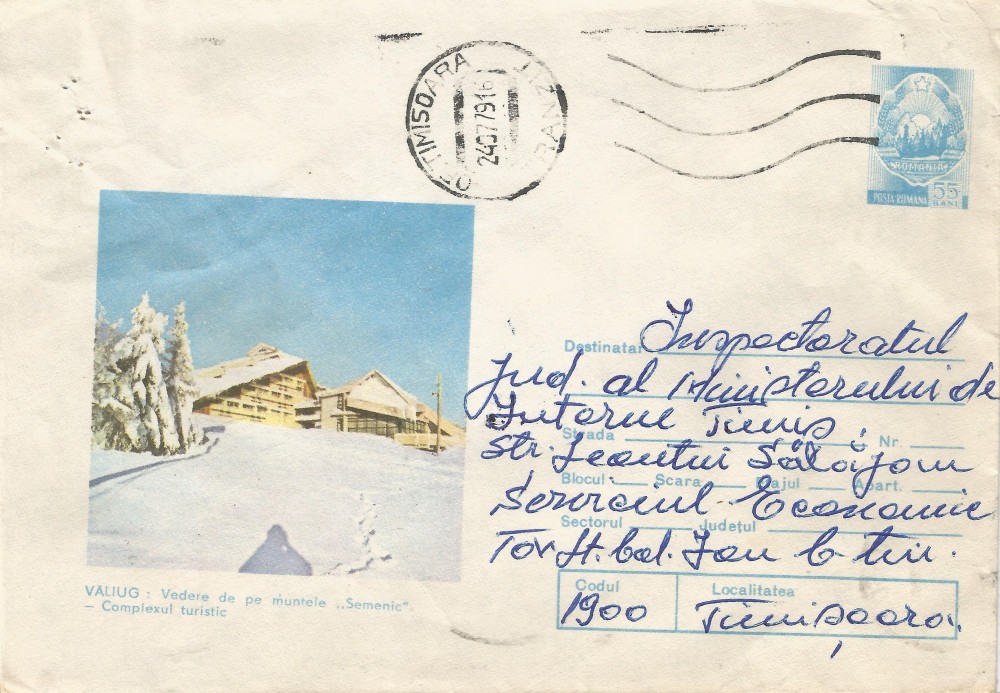 OF. TIMISOARA
TRANZIT
24 07 79 16
ROMANIA
POSTA ROMANA 55 BANI
Destinatar Inspectoratul
Jud. al Ministerului de
Interne Timiș,
Strada Nr.
Str. Leontin Sălăjan
Blocul Scara Etajul Apart.
Serviciul Economic
Sectorul Județul
Tov. Lt. col. Ion
Codul Localitatea
1900 Timișoara
VĂLIUG : Vedere de pe muntele „Semenic".
– Complexul turistic